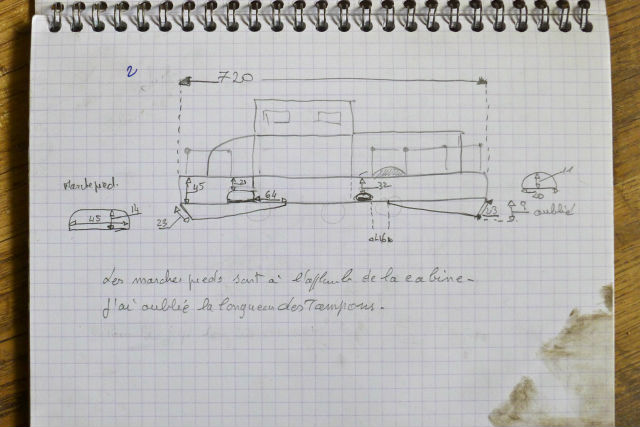 2
720
45
64
32
11
20
Marchepied.
45
14
23
9
oublié
Les marche pieds sont à l'aplomb de la cabine -
J'ai oublié la longueur des Tampons.